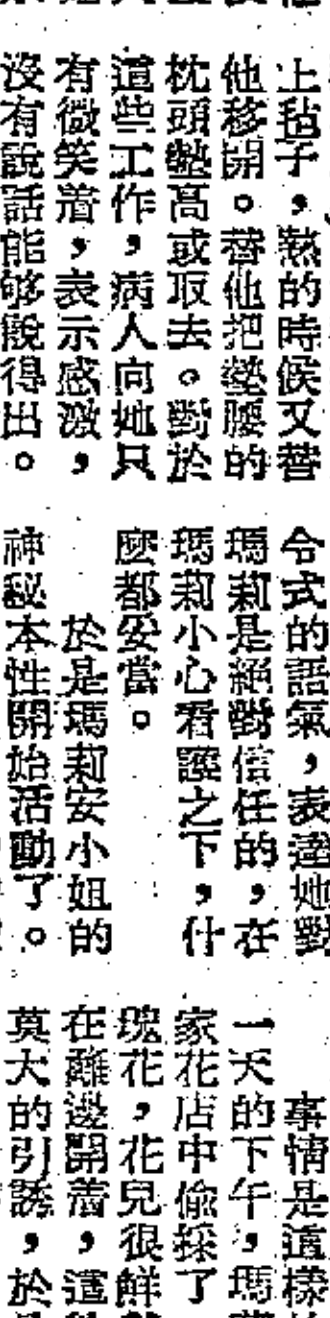 上毡子，熱的時候又替
他移開。替他把墊腰的
枕頭墊高或取去。對於
這些工作，病人向她只
有微笑着，表示感激，
沒有說話能够說得出。
令式的語氣，表達她對
瑪莉是絕對信任的，在
瑪莉小心看護之下，什
麼都妥當。
於是瑪莉安小姐的
神秘本性開始活動了。
事情是這樣
一天的下午，瑪
家花店中偷採了
瑰花，花兒很鮮
在離邊開着，這
莫大的引誘，於